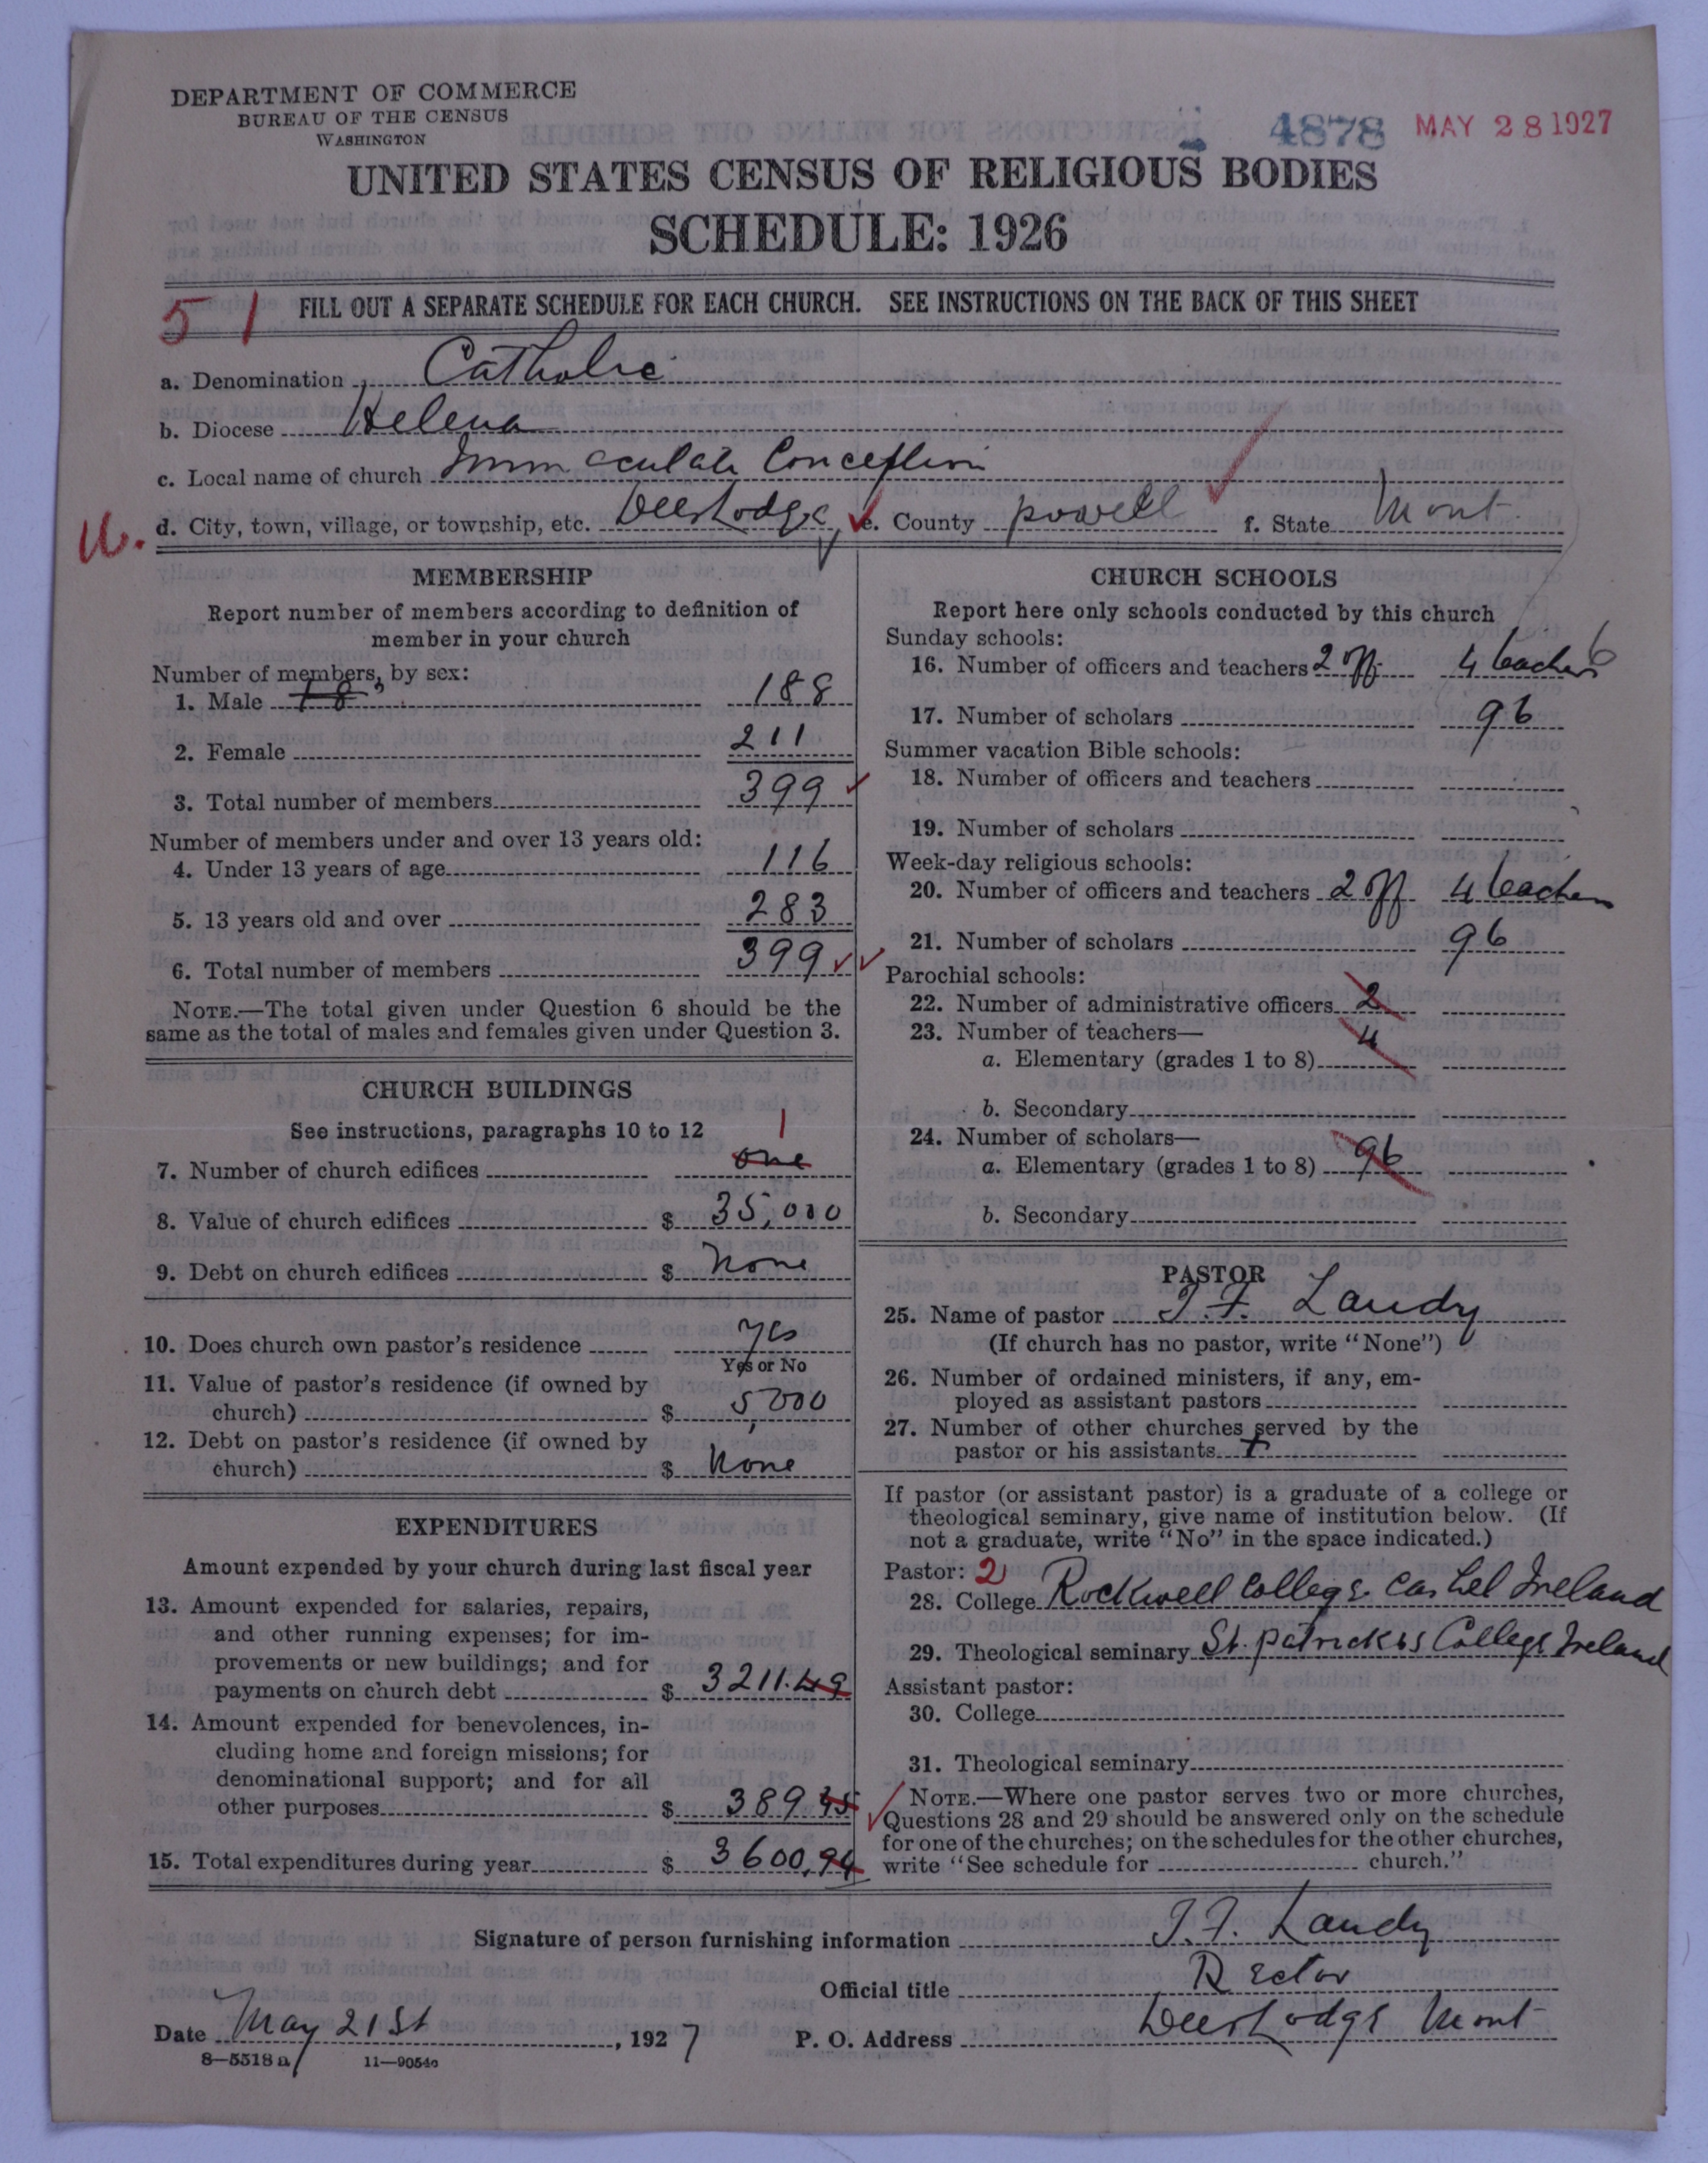 DEPARTMENT OF COMMERCE
BUREAU OF THE CENSUS
WASHINGTON
4878 MAY 28 1927
UNITED STATES CENSUS OF RELIGIOUS BODIES
SCHEDULE: 1926
51 FILL OUT A SEPARATE SCHEDULE FOR EACH CHURCH. SEE INSTRUCTIONS ON THE BACK OF THIS SHEET
a. Denomination Catholic
b. Diocese Helena
c. Local name of church Immaculate Conception
d. City, town, village, or township, etc. Deer Lodge e. County Powell f. State Mont.
MEMBERSHIP
Report number of members according to definition of
member in your church
Number of members, by sex:
1. Male 18 188
2. Female 211
3. Total number of members 399
Number of members under and over 13 years old:
4. Under 13 years of age 116
5. 13 years old and over 283
6. Total number of members 399
NOTE.—The total given under Question 6 should be the
same as the total of males and females given under Question 3.
CHURCH BUILDINGS
See instructions, paragraphs 10 to 12 1
7. Number of church edifices one
8. Value of church edifices $ 35,000
9. Debt on church edifices $ None
10. Does church own pastor's residence yes
Yes or No
11. Value of pastor's residence (if owned by
church) $ 5,000
12. Debt on pastor's residence (if owned by
church) $ None
EXPENDITURES
Amount expended by your church during last fiscal year
13. Amount expended for salaries, repairs,
and other running expenses; for im-
provements or new buildings; and for
payments on church debt $ 3211.49
14. Amount expended for benevolences, in-
cluding home and foreign missions; for
denominational support; and for all
other purposes $ 389 45
15. Total expenditures during year $ 3600,94
CHURCH SCHOOLS
Report here only schools conducted by this church
Sunday schools:
16. Number of officers and teachers 2 off. 4 teachers 6
17. Number of scholars 96
Summer vacation Bible schools:
18. Number of officers and teachers
19. Number of scholars
Week-day religious schools:
20. Number of officers and teachers 2 off 4 teachers
21. Number of scholars 96
Parochial schools:
22. Number of administrative officers 2
23. Number of teachers— 4
a. Elementary (grades 1 to 8)
b. Secondary
24. Number of scholars—
a. Elementary (grades 1 to 8) 96
b. Secondary
PASTOR
25. Name of pastor J. F. Landy
(If church has no pastor, write "None")
26. Number of ordained ministers, if any, em-
ployed as assistant pastors
27. Number of other churches served by the
pastor or his assistants
If pastor (or assistant pastor) is a graduate of a college or
theological seminary, give name of institution below. (If
not a graduate, write "No" in the space indicated.)
Pastor: 2
28. College Rockwell College. Cashel Ireland
29. Theological seminary St. Patricks College Ireland
Assistant pastor:
30. College
31. Theological seminary
NOTE.—Where one pastor serves two or more churches,
Questions 28 and 29 should be answered only on the schedule
for one of the churches; on the schedules for the other churches,
write "See schedule for church."
Signature of person furnishing information J. F. Landy
Official title Rector
Date May 21st, 1927 P. O. Address Deer Lodge Mont
8—5518 a 11—9054a